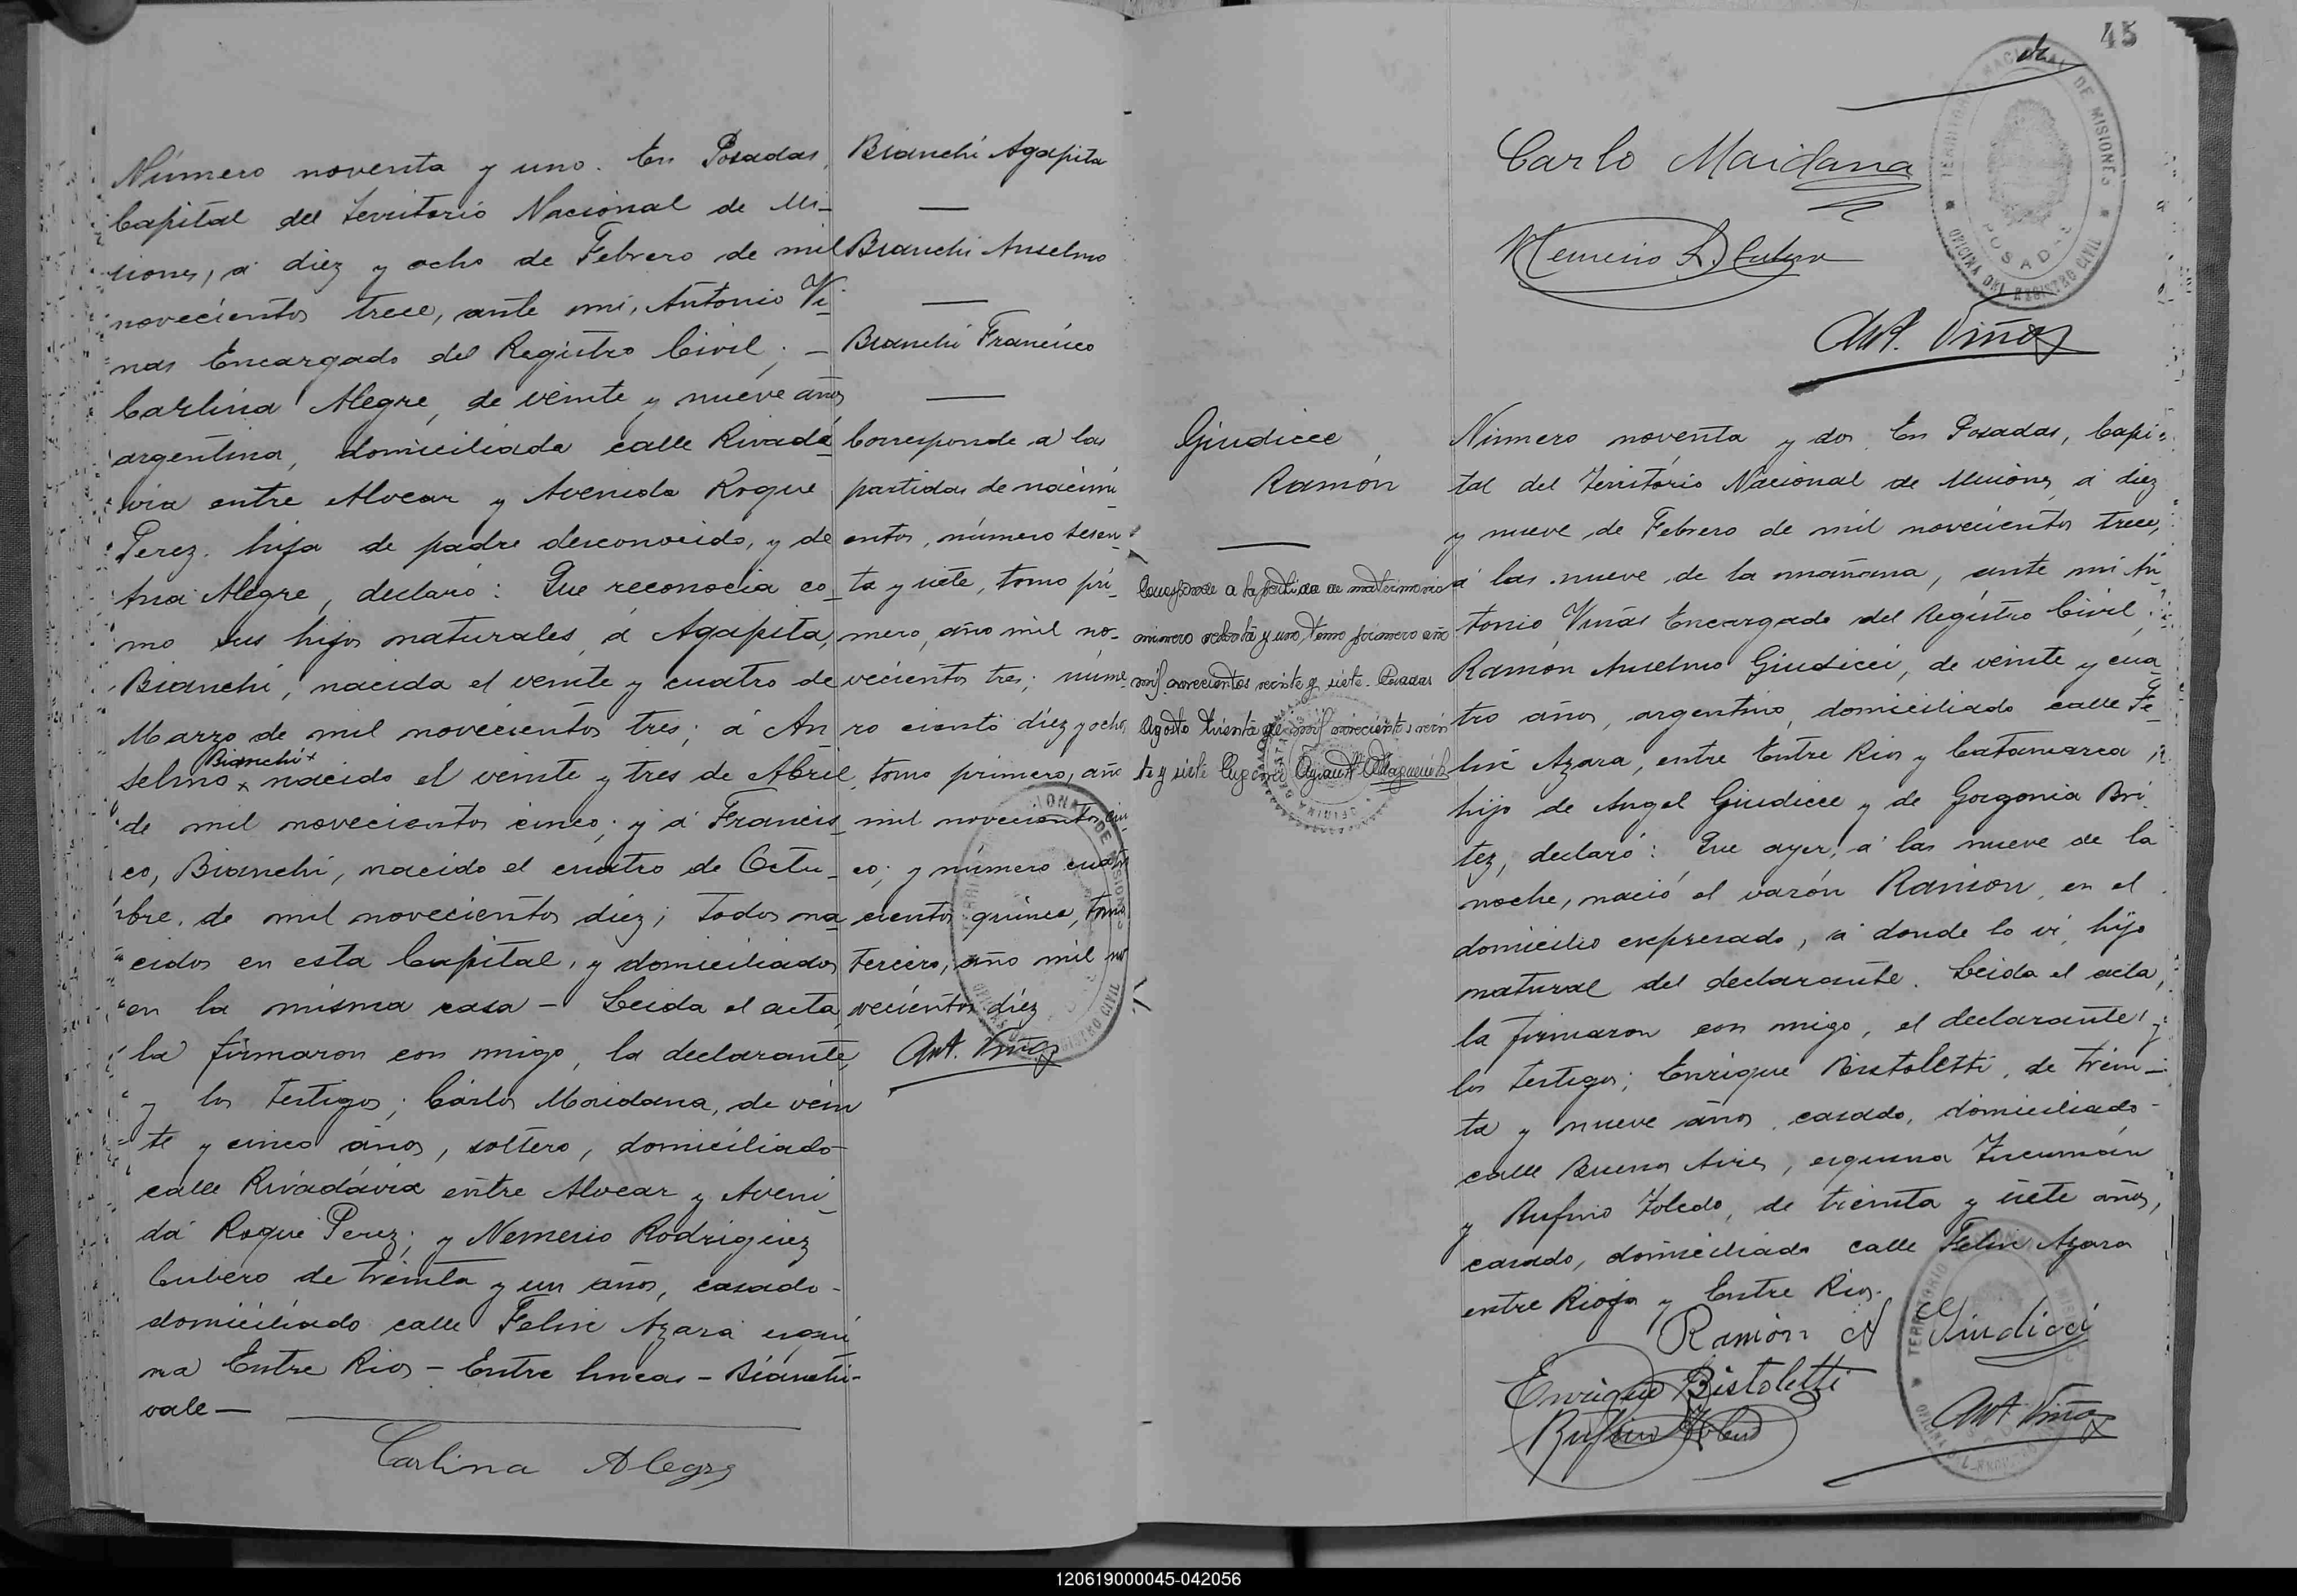 Número noventa y uno. En Posadas,
Capital del Territorio Nacional de Mi_
siones, á diez y ocho de Febrero de mil
novecientos trece, ante mi, Antonio Vi_
ñas Encargado del Registro Civil; —
Carlina Alegre, de veinte y nueve años,
argentina, domiciliada calle Rivada_
via entre Alvear y Avenida Roque
Perez. hija de padre desconocido, y de
Alegre, declaró: Que reconocia co_
mo sus hijos naturales, á Agapita,
Bianchi, nacida el veinte y cuatro de
Marzo de mil novecientos tres; á An_
Bianchi x
selmo x nacido el veinte y tres de Abril
de mil novecientos cinco; y á Francis_
co, Bianchi, nacido el cuatro de Octu_
bre, de mil novecientos diez; todos na_
cidos en esta Capital, y domiciliados
en la misma casa – Leida el acta,
la firmaron con migo, la declarante,
y los testigos; Cárlos Maidana, de vein
te y cinco años, soltero, domiciliado
calle Rivadavia entre Alvear y Aveni_
da Roque Perez; y Nemesio Rodriguez
Cubero de treinta y un años, casado –
domiciliado calle Felix Azara esqui_
na Entre Rios – Entre lineas – Bianchi –
vale —
Carlina Alegre
Bianchi Agapita
—
Bianchi Anselmo
—
Bianchi Francisco
—
Corresponde á las
partidas de nacimi_
entos, número sesen_
ta y siete, tomo pri_
mero, año mil no_
vecientos tres; núme_
ro ciento diez y ocho,
tomo primero, año
mil novecientos cin_
co; y número cuatro
cientos quince, tomo
tercero, año mil no
vecientos diez
Ant. Viñas
45
TERRITORIO NACIONAL DE MISIONES
POSADAS
OFICINA DEL REGISTRO CIVIL
Carlo Maidana
Nemesio R. Cubero
Ant. Viñas
Giudicce
Ramón
—
Corresponde a la partida de matrimonio
número ochenta y uno, tomo primero año
mil novecientos veinte y siete. Posadas
Agosto treinta de mil novecientos vein
te y siete
Número noventa y dos. En Posadas, Capi_
tal del Territorio Nacional de Misiones, á diez
y nueve de Febrero de mil novecientos trece,
á las nueve de la mañana, ante mi An_
tonio Viñas Encargado del Registro Civil;
Ramón Anselmo Giudicci, de veinte y cua_
tro años, argentino, domiciliado calle Fe_
lix Azara, entre Entre Rios y Catamarca,
hijo de Angel Giudicce y de Gorgonia Bri_
tez, declaró: Que ayer, á las nueve de la
noche, nació el varón Ramon, en el
domicilio expresado, á donde lo vi, hijo
natural del declarante. Leida el acta,
la firmaron con migo, el declarante, y
los testigos; Enrique Bistoletti, de trein_
ta y nueve años, casado, domiciliado –
calle Buenos Aires, esquina Tucumán
y Rufino Toledo, de treinta y siete años,
casado, domiciliado calle Felix Azara
entre Rioja y Entre Rios.
Ramón A Giudicci
Enrique Bistoletti
Rufino Toledo
Ant Viñas
120619000045-042056